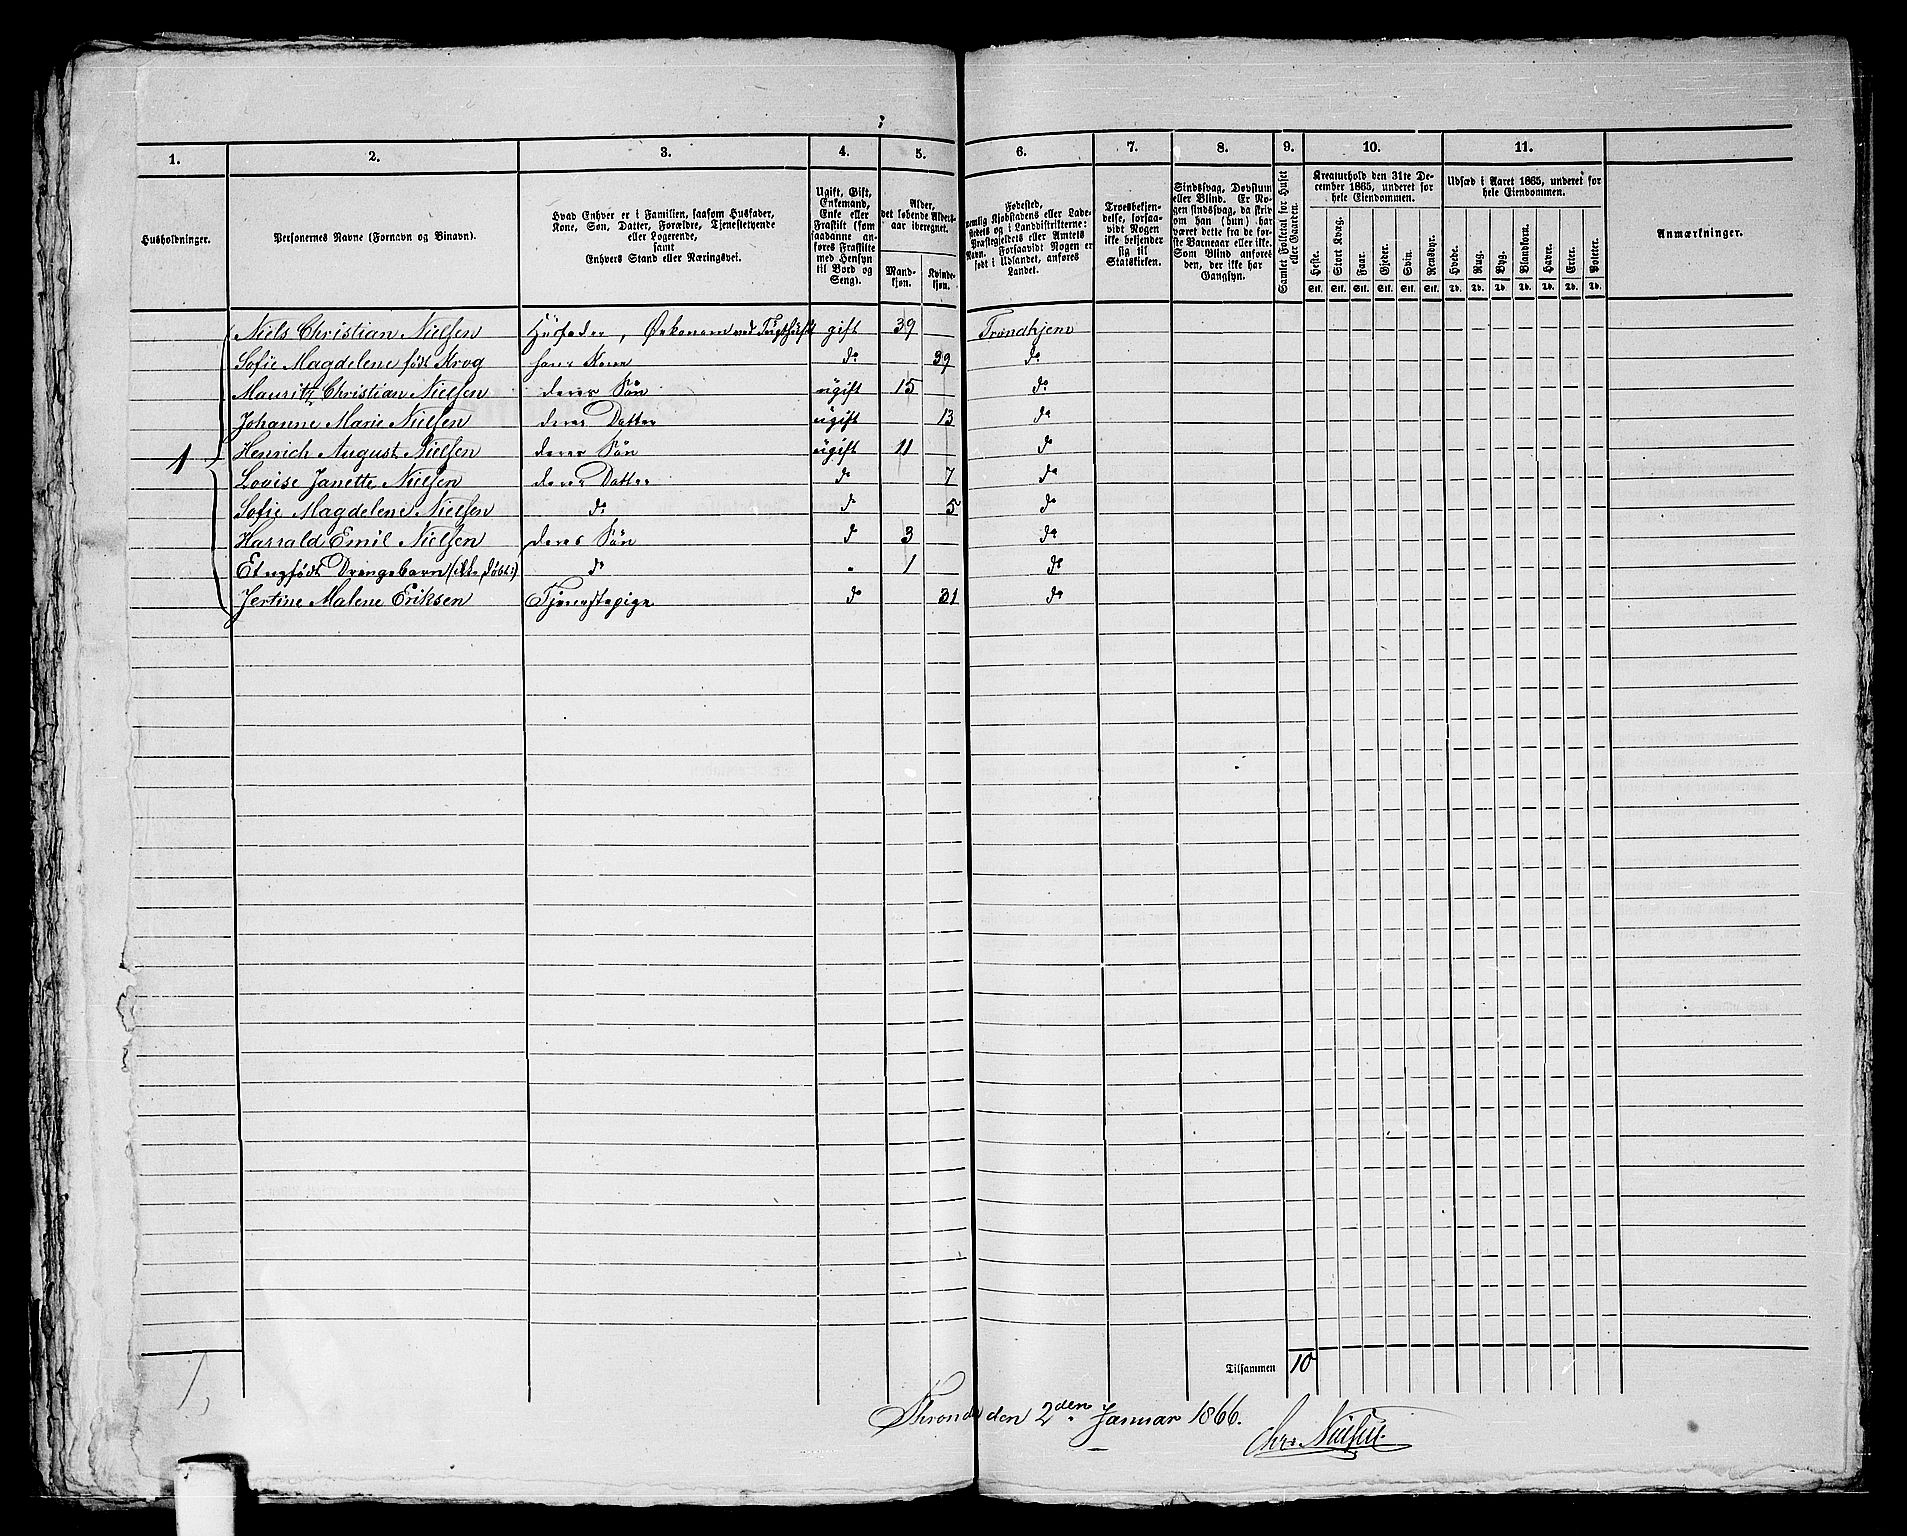 1. 2. 3. 4. 5. 6. 7. 8. 9. 10. 11.
Husholdninger.
Personernes Navne (Fornavn og Binavn).
Hvad Enhver er i Familien, saasom Husfader,
Kone, Søn, Datter, Forældre, Tjenestetyende
eller Logerende,
samt
Enhvers Stand eller Næringsvei.
Ugift, Gift,
Enkemand,
Enke eller
Fraskilt (som
saadanne an-
føres Fraskilte
med Hensyn
til Bord og
Seng).
Alder,
det løbende Alders-
aar iberegnet.
Mand-
kjøn.
Kvinde-
kjøn.
Fødested,
nemlig Kjøbstadens eller Lade-
stedets og i Landdistrikterne:
Præstegjeldets eller Amtets
Navn. Forsaavidt Nogen er
født i Udlandet, anføres
Landet.
Troesbekjen-
delse, forsaa-
vidt Nogen
ikke bekjender
sig til
Statskirken.
Sindssvag, Døvstum
eller Blind. Er No-
gen sindssvag, da skriv
om han (hun) har
været dette fra de før-
ste Barneaar eller ikke.
Som Blind anføres
den, der ikke har
Gangsyn.
Samlet Folketal for Huset
eller Gaarden.
Kreaturhold den 31te De-
cember 1865, underet for
hele Eiendommen.
Heste. Stort Kvæg. Faar. Gjeder. Svin. Rensdyr.
Stk. Stk. Stk. Stk. Stk. Stk.
Udsæd i Aaret 1865, underet for
hele Eiendommen.
Hvede. Rug. Byg. Blandkorn. Havre. Erter. Poteter.
Td. Td. Td. Td. Td. Td. Td.
Anmærkninger.
Niels Christian Nielsen Husfader, Økonom ved Tugthuset gift 39 Trondhjem
Sofie Magdelene født Krog hans Kone do 39 do
Mauritz Christian Nielsen deres Søn ugift 15 do
Johanne Marie Nielsen deres Datter ugift 13 do
1 Henrich August Nielsen deres Søn ugift 11 do
Lovise Janette Nielsen deres Datter do 7 do
Sofie Magdelene Nielsen do do 5 do
Harrald Emil Nielsen deres Søn do 3 do
Et nyfødt Drengebarn (ikke døbt) do " 1 do
Jertine Malene Eriksen Tjenestepige do 31 do
Tilsammen 10
Thrond den 2den Januar 1866.
Chr. Nielsen